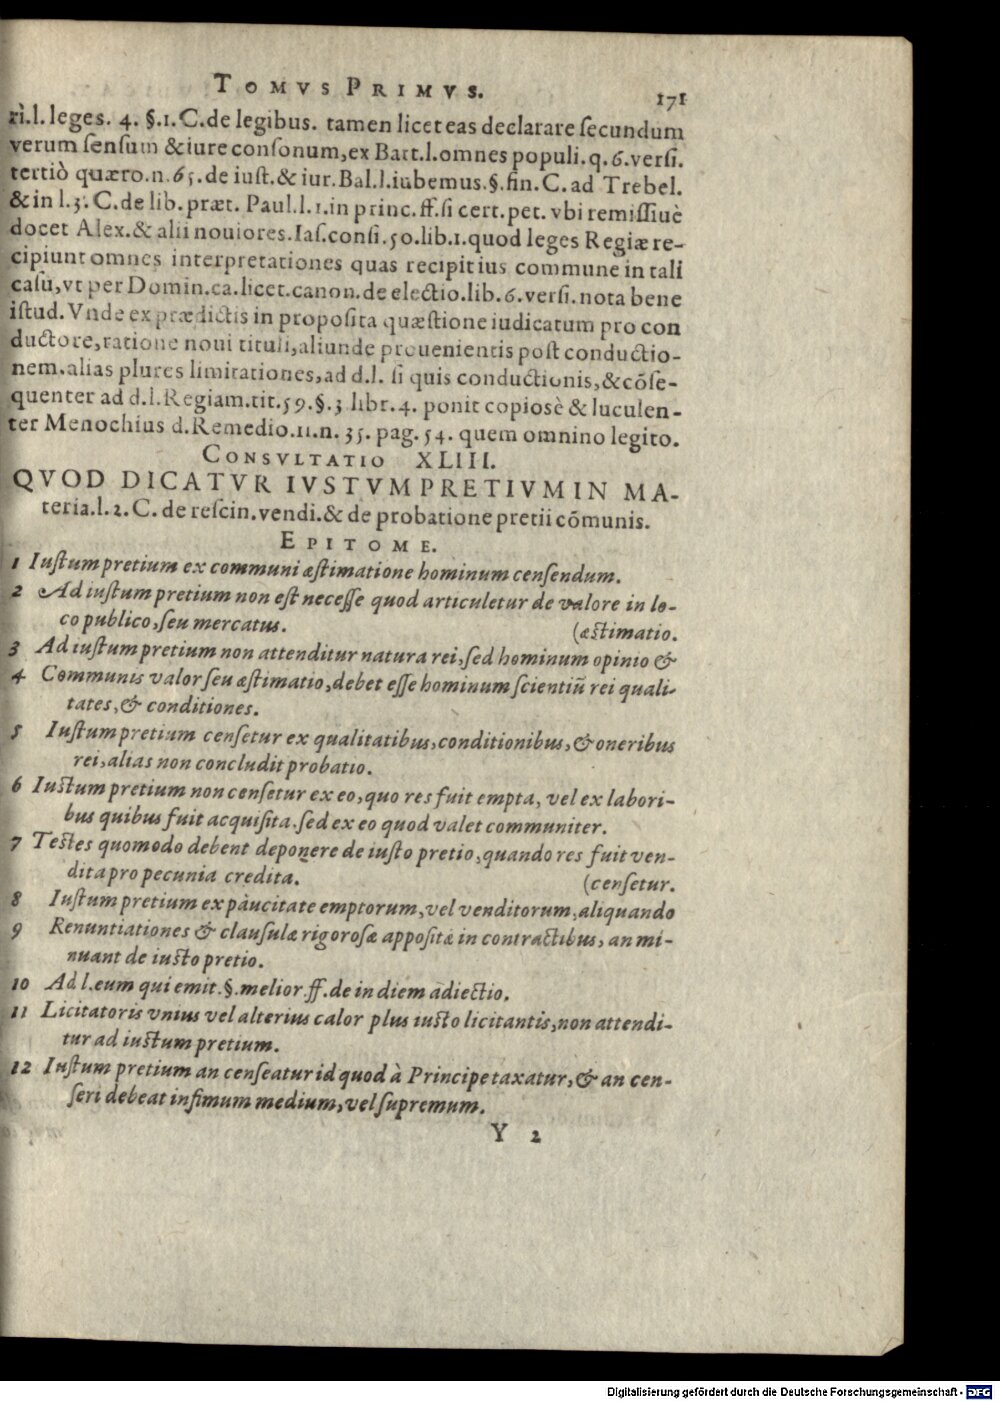 TOMVS PRIMVS. 171
ri.l.leges. 4. §.1.C.de legibus. tamen licet eas declarare ſecundum
verum ſenſum & iure conſonum, ex Bart.l.omnes populi.q.6.verſi.
tertiò quæro.n.65.de iuſt.& iur. Bal.l.iubemus.§.fin. C. ad Trebel.
& in l.3. C.de lib. præt. Paul.l.1.in princ.ff.ſi cert. pet. vbi remiſſiuè
docet Alex.& alii nouiores.Iaſ.conſi.50.lib.1.quod leges Regiæ re-
cipiunt omnes interpretationes quas recipit ius commune in tali
caſu, vt per Domin.ca.licet.canon.de electio.lib.6.verſi.nota bene
iſtud. Vnde ex prædictis in propoſita quæſtione iudicatum pro con
ductore, ratione noui tituli, aliunde prouenientis poſt conductio-
nem.alias plures limitationes, ad d.l. ſi quis conductionis, & cõſe-
quenter ad d.l.Regiam.tit.59.§.3 libr.4. ponit copiosè & luculen-
ter Menochius d.Remedio.11.n. 35. pag. 54. quem omnino legito.
CONSVLTATIO XLIII.
QVOD DICATVR IVSTVM PRETIVM IN MA-
teria.l.2.C. de reſcin.vendi.& de probatione pretii cõmunis.
EPITOME.
1 Iuſtum pretium ex communi æſtimatione hominum cenſendum.
2 Ad iuſtum pretium non eſt neceſſe quod articuletur de valore in lo-
co publico, ſeu mercatus. (æſtimatio.
3 Ad iuſtum pretium non attenditur natura rei, ſed hominum opinio &
4 Communis valor ſeu æſtimatio, debet eſſe hominum ſcientiũ rei quali-
tates, & conditiones.
5 Iuſtum pretium cenſetur ex qualitatibus, conditionibus, & oneribus
rei, alias non concludit probatio.
6 Iuſtum pretium non cenſetur ex eo, quo res fuit empta, vel ex labori-
bus quibus fuit acquiſita.ſed ex eo quod valet communiter.
7 Teſtes quomodo debent deponere de iuſto pretio, quando res fuit ven-
dita pro pecunia credita. (cenſetur.
8 Iuſtum pretium ex pàucitate emptorum, vel venditorum, aliquando
9 Renuntiationes & clauſulæ rigoroſæ appoſitæ in contractibus, an mi-
nuant de iuſto pretio.
10 Ad l.eum qui emit.§.melior.ff.de in diem adiectio.
11 Licitatoris vnius vel alterius calor plus iuſto licitantis, non attendi-
tur ad iuſtum pretium.
12 Iuſtum pretium an cenſeatur id quod à Principe taxatur, & an cen-
ſeri debeat infimum medium, vel ſupremum.
Y 2
Digitalisierung gefördert durch die Deutsche Forschungsgemeinschaft - DFG